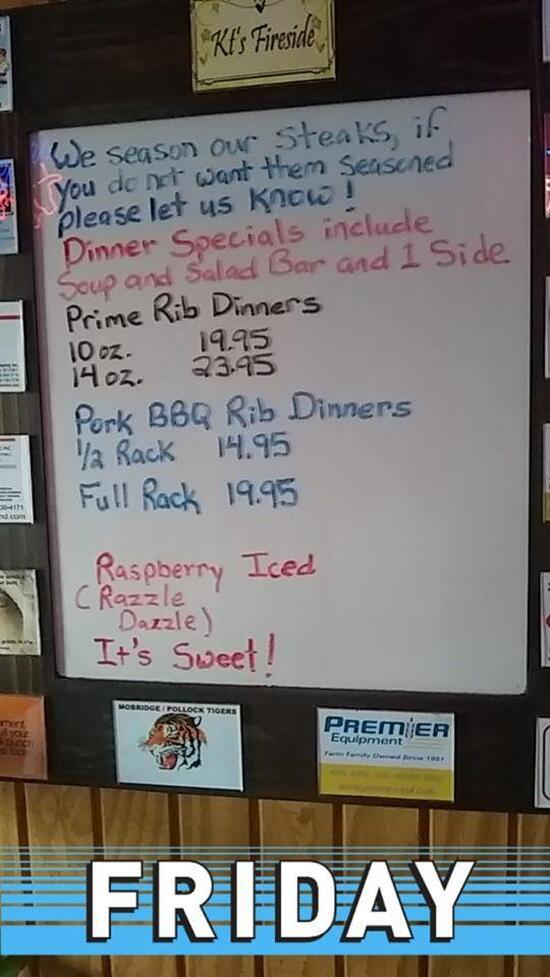 Kt's Fireside
We season our Steaks, if
you do not want them Seasoned
please let us Know!
Dinner Specials include
Soup and Salad Bar and 1 Side
Prime Rib Dinners
10 oz. 19.95
14 oz. 23.95
Pork BBQ Rib Dinners
1/2 Rack 14.95
Full Rack 19.95
Raspberry Iced
(Razzle
Dazzle)
It's Sweet!
MOBRIDGE / POLLOCK TIGERS
PREMIER
Equipment
Farm Family Owned Since 1981
FRIDAY